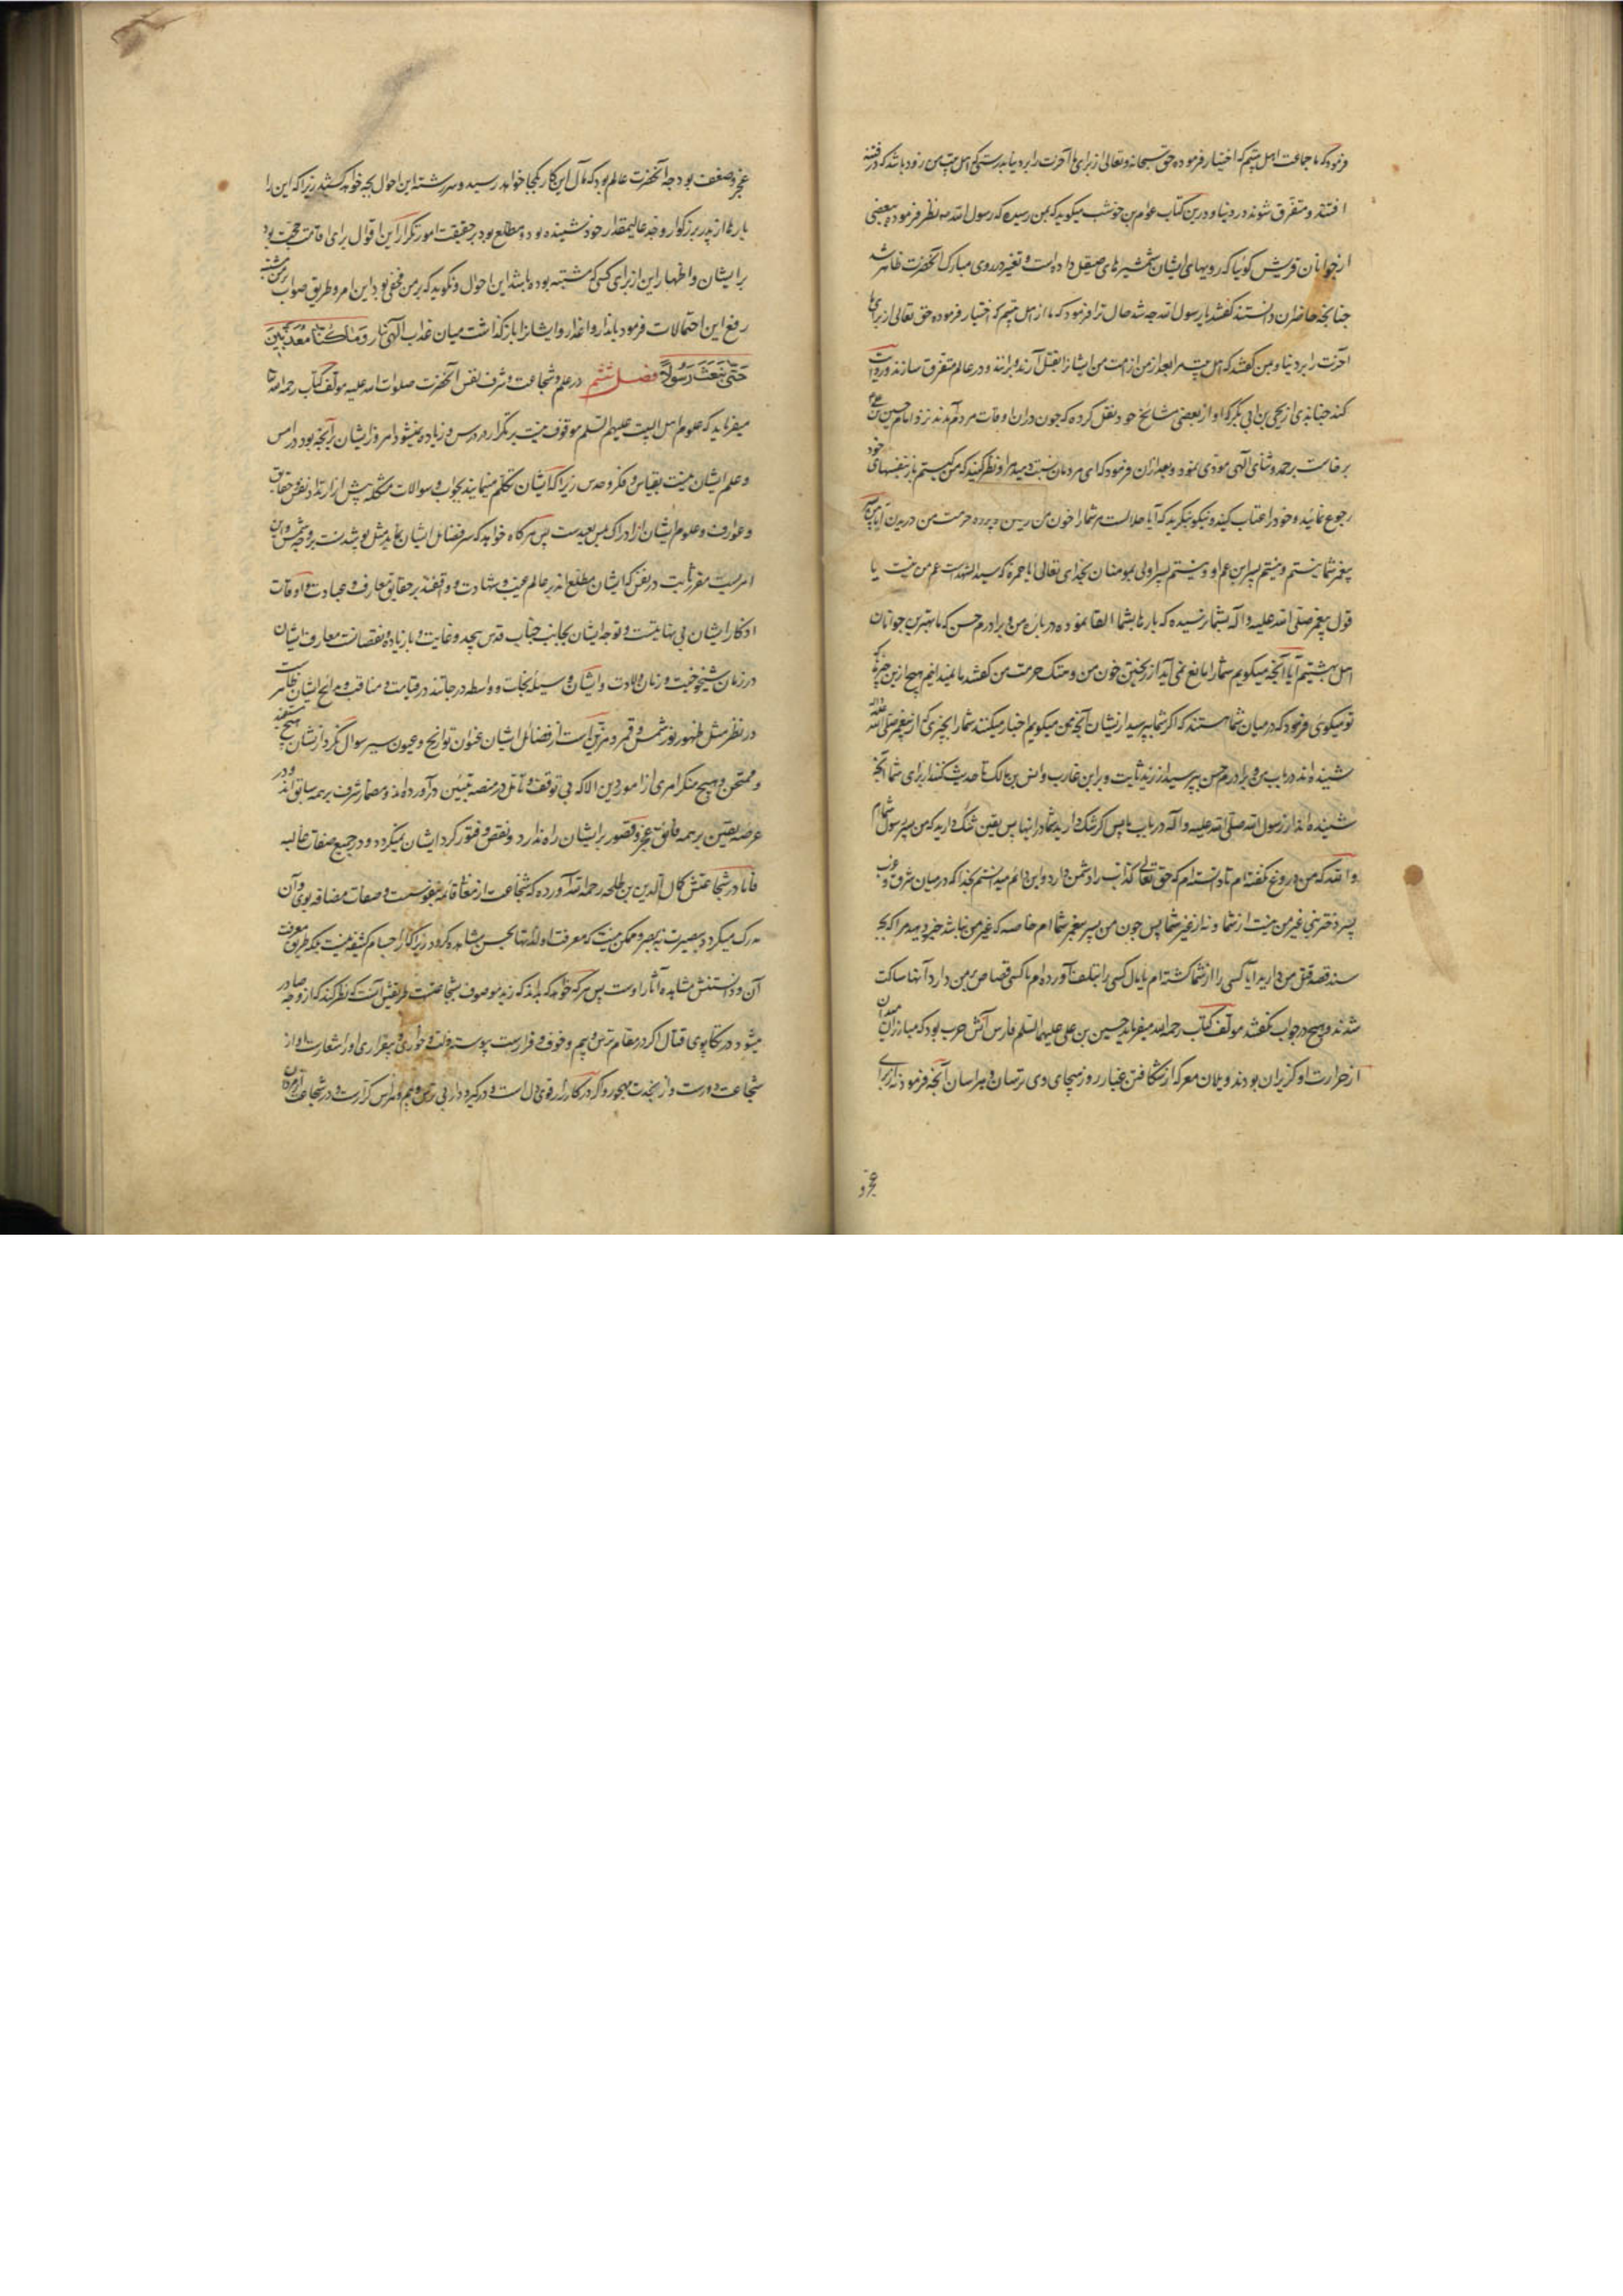 فرمود که ما جماعت اهل بیتیم که اختیار فرموده حق سبحانه و تعالی از برای ما آخرت را بر دنیا بدرستی که اهل بیت من زود باشد که در فتنه
افتند و متفرق شوند در دنیا و درین کتاب عوام بن حوشب میگوید که بمن رسیده که رسول الله نظر فرمود ببعضی
از جوانان قریش گوئیا که رویهای ایشان شمشیرهای صیقل داده است و تغیر در روی مبارک آنحضرت ظاهر شد
چنانچه حاضران دانستند گفتند یا رسول الله چه شد حال ترا فرمود که ما از اهل بیتیم که اختیار فرموده حق تعالی از برای ما
آخرت را بر دنیا و بمن گفتند که اهل بیت مرا بعد از من از امت من ایشانرا بقتل آرند و برانند و در عالم متفرق سازند و روایت
کند جنابذی از یحیی بن ابی بکر که او از بعضی مشایخ خود نقل کرده که چون دران اوقات مردم آمدند نزد امام حسین بن علی
برخاست بر حمد و ثنای الهی مودی نمود و بعد ازان فرمود که ای مردمان نسبت دهید مرا و نظر کنید که من کیستم باز بنفسهای خود
رجوع نمائید و خود را عتاب کنید و نیکو بنگرید که آیا حلالست مر شما را خون من ریختن و پرده حرمت من دریدن آیا من پسر
پیغمبر شما نیستم و نیستم پسر ابن عم او و نیستم پسر اولی بمومنان بخدای تعالی ایا حمزه که سید الشهداست عم من نیست یا
قول پیغمبر صلی الله علیه و آله بشما نرسیده که بارها بشما القا نموده در باره من و برادرم حسن که ما بهترین جوانان
اهل بهشتیم آیا آنچه میگویم شما را مانع نمی آید از ریختن خون من و هتک حرمت من گفتند ما نمیدانیم هیچ ازین چیزها که
تو میگوئی فرمود که در میان شما هستند که اگر شما بپرسید ازیشان آنچه من میگویم اخبار میکنند شما را بچیزی که از پیغمبر صلی الله علیه
شنیده اند در باب من و برادرم حسن بپرسید از زید ثابت و براء بن عازب و انس بن مالک تا حدیث کنند از برای شما آنچه
شنیده اند از رسول الله صلی الله علیه و آله در باب ما پس اگر شک دارید شما در اینها پس یقین شک دارید که من پسر رسول شما ام
والله که من دروغ نگفته ام تا دانسته ام که حق تعالی کذاب را دشمن دارد و این دائم میدانستم بخدا که در میان شرق و غرب
پسر دختر نبی غیر من نیست از شما و نه از غیر شما پس چون من پسر پیغمبر شما ام خاصه که غیر من نباشد خبر دهید مرا که بچه
سند قصد قتل من دارید آیا کسی را از شما کشته ام یا مال کسی را بتلف آورده ام یا کسی قصاص بمن دارد آنها ساکت
شدند و هیچ در جواب نگفتند مولف کتاب رحمه الله میفرماید حسین بن علی علیهما السلم فارس آتش حرب بود که مبارزان میدان
از حرارت او گریزان بودند و یلان معرکه از شکافتن غبار روز هیجای وی ترسان و هراسان آنچه فرمود نه از برای
عجز و
عجز و ضعف بود چه آنحضرت عالم بود که مآل این کار بکجا خواهد رسید و سررشته این احوال بچه خواهد کشید زیرا که این را
بارها از پدر بزرگوار و جد عالیمقدار خود شنیده بود و مطلع بود بر حقیقت امور تکرار این اقوال برای اقامت حجت بود
بر ایشان و اظهار این از برای کسی که مشتبه بوده باشد این احوال و نگوید که بر من مخفی بود این امر و طریق صواب بر من مشتبه
رفع این احتمالات فرمود بانذار و اعذار و ایشانرا باز گذاشت میان عذاب الهی نار وَمَا كُنَّا مُعَذِّبِينَ
حَتَّى نَبْعَثَ رَسُولًا فصل ششم در علم و شجاعت و شرف نفس آنحضرت صلوات الله علیه مولف کتاب رحمه الله
میفرماید که علوم اهل البیت علیهم السلم موقوف نیست بر تکرار و درس و زیاده نمیشود امروز ایشان بر آنچه بود در امس
و علم ایشان نیست بقیاس و فکر و حدس زیرا که ایشان تکلم مینمایند بجواب و سوالات مشکله پیش از ارتداد نفس حقایق
و عوارف و علوم ایشان از ادراک بس بعیدست پس هر که خواهد که ستر فضائل ایشان نماید مثل پوشیدنست بر وجه شمس و این
امریست مقرر ثابت در نفس که ایشان مطلع اند بر عالم غیب و شهادت و واقفند بر حقایق معارف و عبادت و اوقات
اذکار ایشان بی نهایتست و توجه ایشان بجانب جناب قدس بیحد و غایت و بار زیاده و نقصانست معارف ایشان
در زمان شیخوخیت و زمان ولادت و ایشان وسیله نجات و واسطه درجاتند در قیامت و مناقب و مدایح ایشان ظاهرست
در نظر مثل ظهور نور شمس و قمر و مزین است از فضائل ایشان عنوان تواریخ و عیون سیر سوال نکرد ازیشان هیچ مستفید
و ممتحن و هیچ منکر امری از امور دین الا که بی توقف و تامل در منصه تبیین در آورده اند و مضمار شرف بر همه سابق اند و در
عرصه یقین بر همه فائق عجز و قصور بر ایشان راه ندارد و نقص و فتور گرد ایشان نمیگردد و در جمیع صفات عالیه
فاما در شجاعتش کمال الدین بن طلحه رحمه الله آورده که شجاعت از معنا قائمه بنفوسست و صفات مضافه بوی و آن
مدرک میگردد ببصیرت نه ببصر و ممکن نیست که معرفت او لذاتها بحس مشاهده گردد زیرا که از اجسام کثیفه نیست بلکه طریق معرفت
آن و دانستنش مشاهده آثار اوست پس هر که خواهد که بداند که زید موصوف بشجاعتست طریقش آنست که نظر کند که از وچه صادر
میشود در تکاپوی قتال اگر در مقام ترس و بیم و خوف و فرارست پیوسته ذلت و خواری و بیقراری او را شعارست او از
شجاعت دورست و از نجدت مهجور و اگر در کارزار قوی دل است و در گیر و دار بی ترس و بیم و هراس کرارست در شجاعت